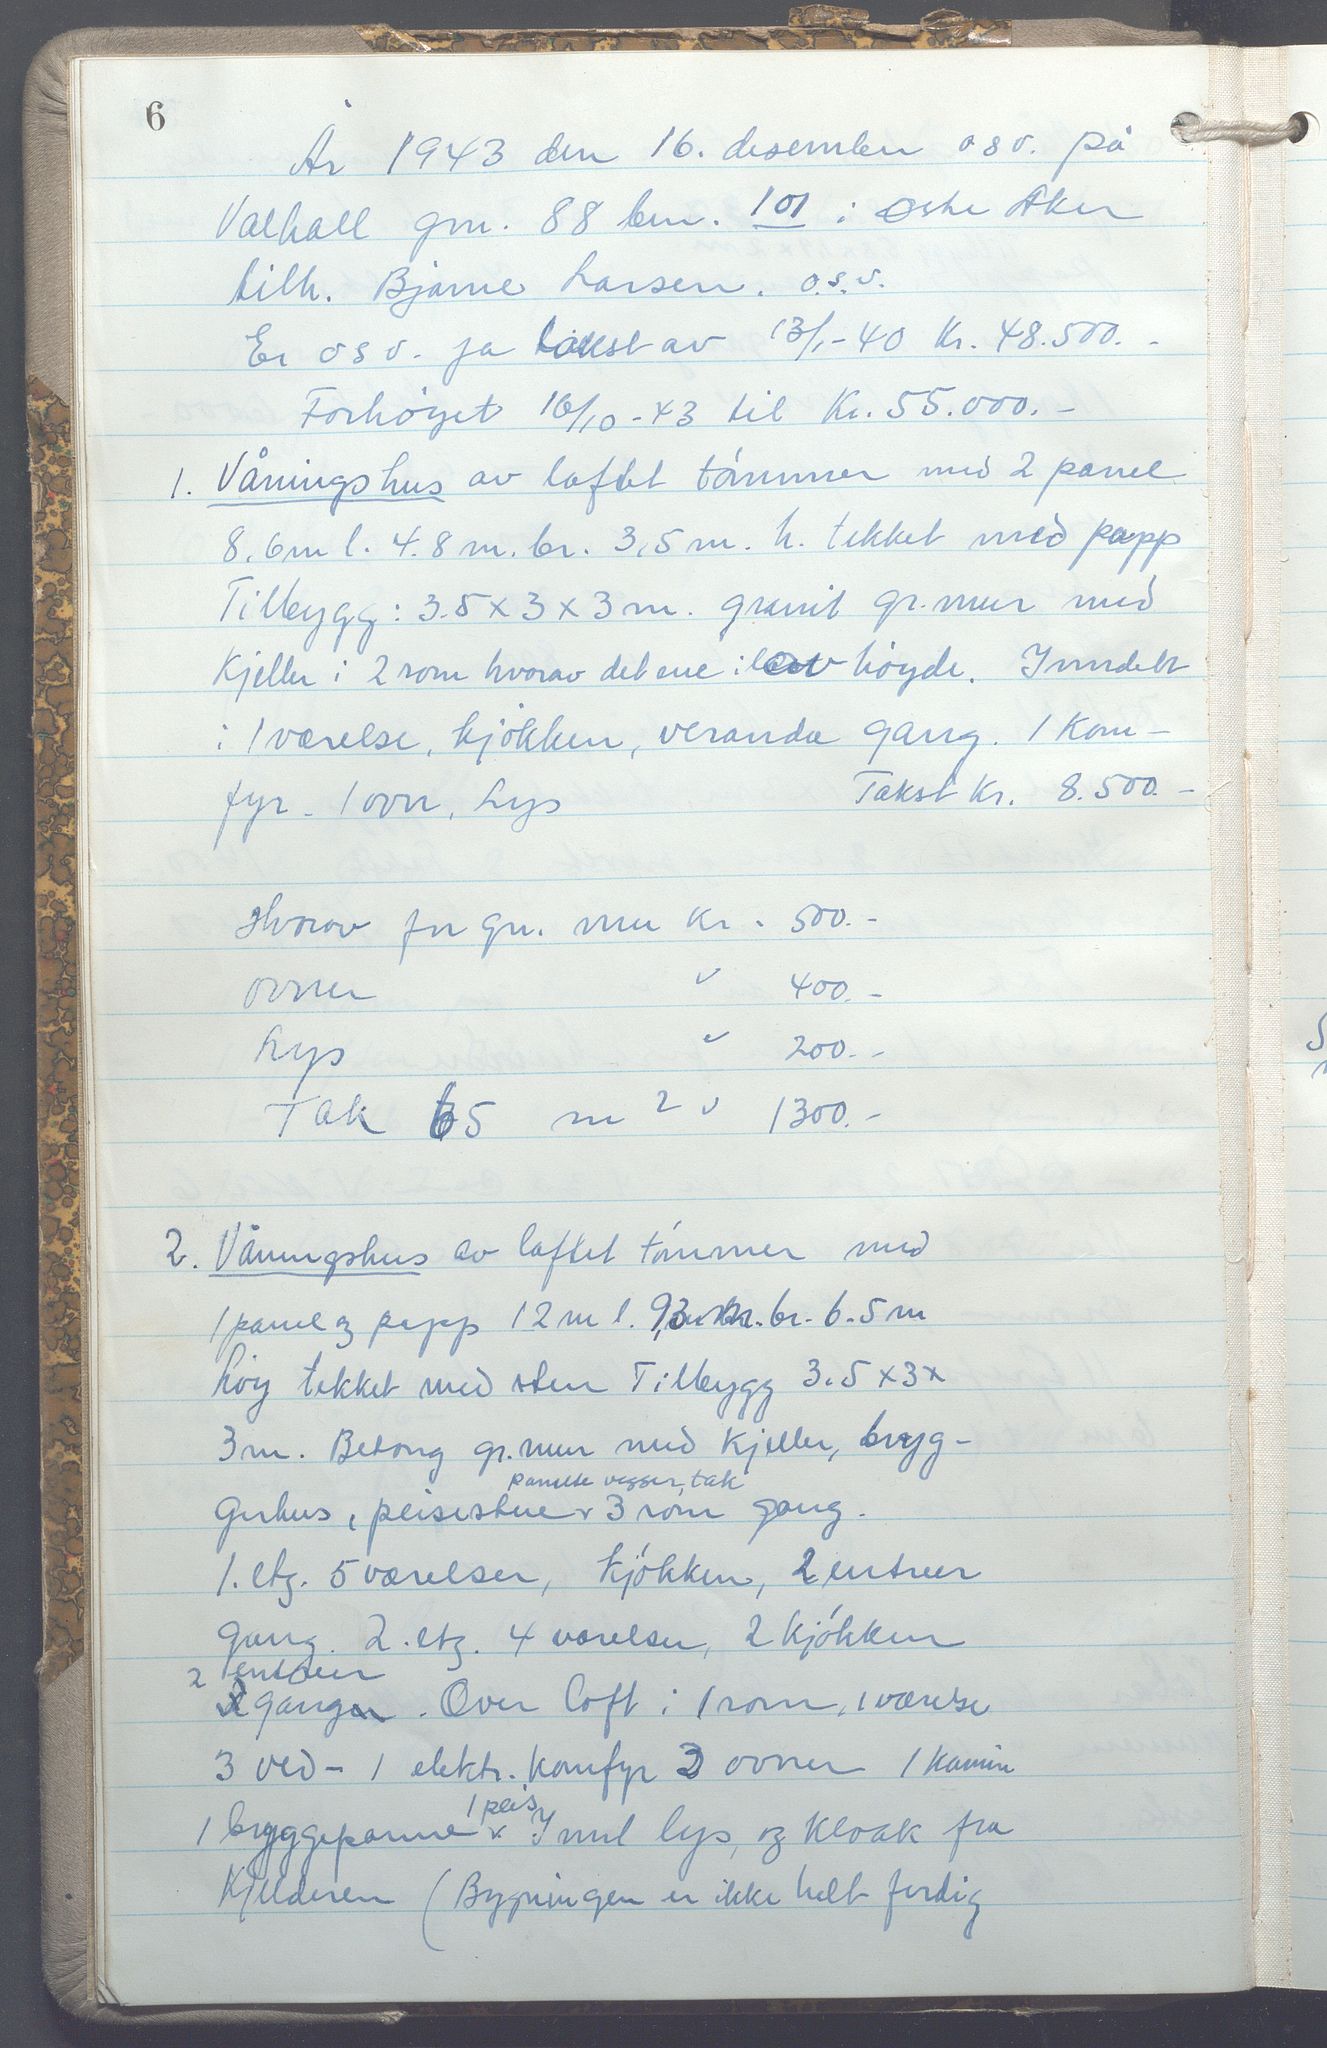 6
År 1943 den 16. desember osv. på
Valhall gnr. 88 bnr. 101 i Østre Aker
tilh. Bjarne Larsen. o.s.v.
Er osv. ja takst av 13/1-40 Kr. 48.500.-
Forhöyet 16/10-43 til Kr. 55.000.-
1. Våningshus av laftet tömmer med 2 panel
8,6m l. 4.8 m. br. 3,5 m. h. tekket med papp
Tilbygg: 3.5 x 3 x 3 m. granit gr.mur med
Kjeller i 2 rom hvorav det ene i lav höyde. Inndelt
i 1 værelse, kjökken, veranda gang. 1 Kom-
fyr. 1 ovn, Lys Takst Kr. 8.500.-
Hvorav for gr. mur Kr. 500.-
ovner " 400.-
Lys " 200.-
Tak 65 m2 " 1300.-
2. Våningshus av laftet tömmer med
1 panel og papp 12 m l. 9,3 m. br. 6.5 m
höy tekket med sten Tilbygg 3.5 x 3 x
3 m. Betong gr.mur med Kjeller, bryg-
panelte vegger, tak
gerhus, peisestue v 3 rom gang.
1. etg. 5 værelser, kjökken, 2 entreer
gang. 2. etg. 4 værelser, 2 kjökken
2 entreer
gang. Over loft i 1 rom, 1 værelse
3 ved- 1 elektr. Komfyr 3 ovner 1 Kamin
1 peis
1 bryggepanne v Innl lys, og Kloak fra
Kjelderen (Bygningen er ikke helt ferdig